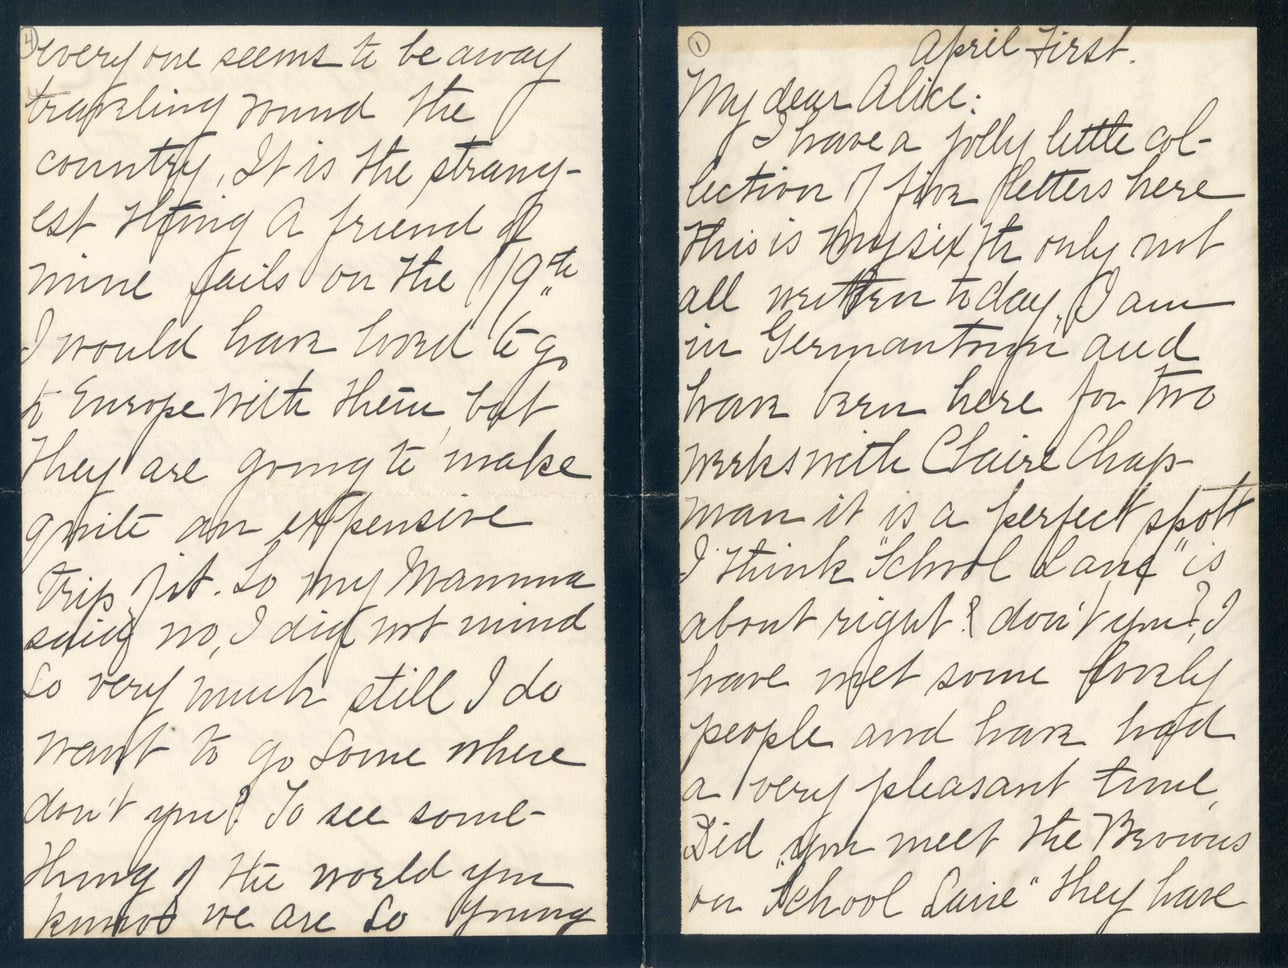 4
every one seems to be away
traveling round the
country, It is the strang-
est thing A friend of
mine sails on the 19th
I would have loved to go
to Europe with them, but
they are going to make
quite an expensive
trip of it. So my Mamma
said no, I did not mind
So very much still I do
want to go some where
don't you? To see some-
thing of the world you
know we are so young
1
April First.
My dear Alice:
I have a jolly little col-
lection of five letters here
this is my sixth only not
all written today, I am
in Germantown and
have been here for two
weeks with Claire Chap-
man it is a perfect spott
I think "School Lane" is
about right! don't you?, I
have met some lovely
people and have had
a very pleasant time,
Did you meet the Browns
on "School Lane" they have